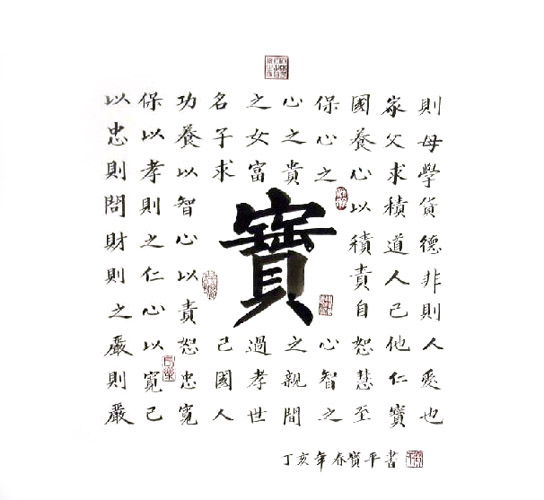 則母學貨德非則人爱也
家父求積道人己他仁寶
國養心以積責自恕慧至
保心之
心智之
心之貴
之親間
之女富
過孝世
名子求
己國人
寶
功養以智心以責恕忠寬
保以孝則之仁心以寬己
以忠則問財則之嚴則嚴
丁亥年春寶平書